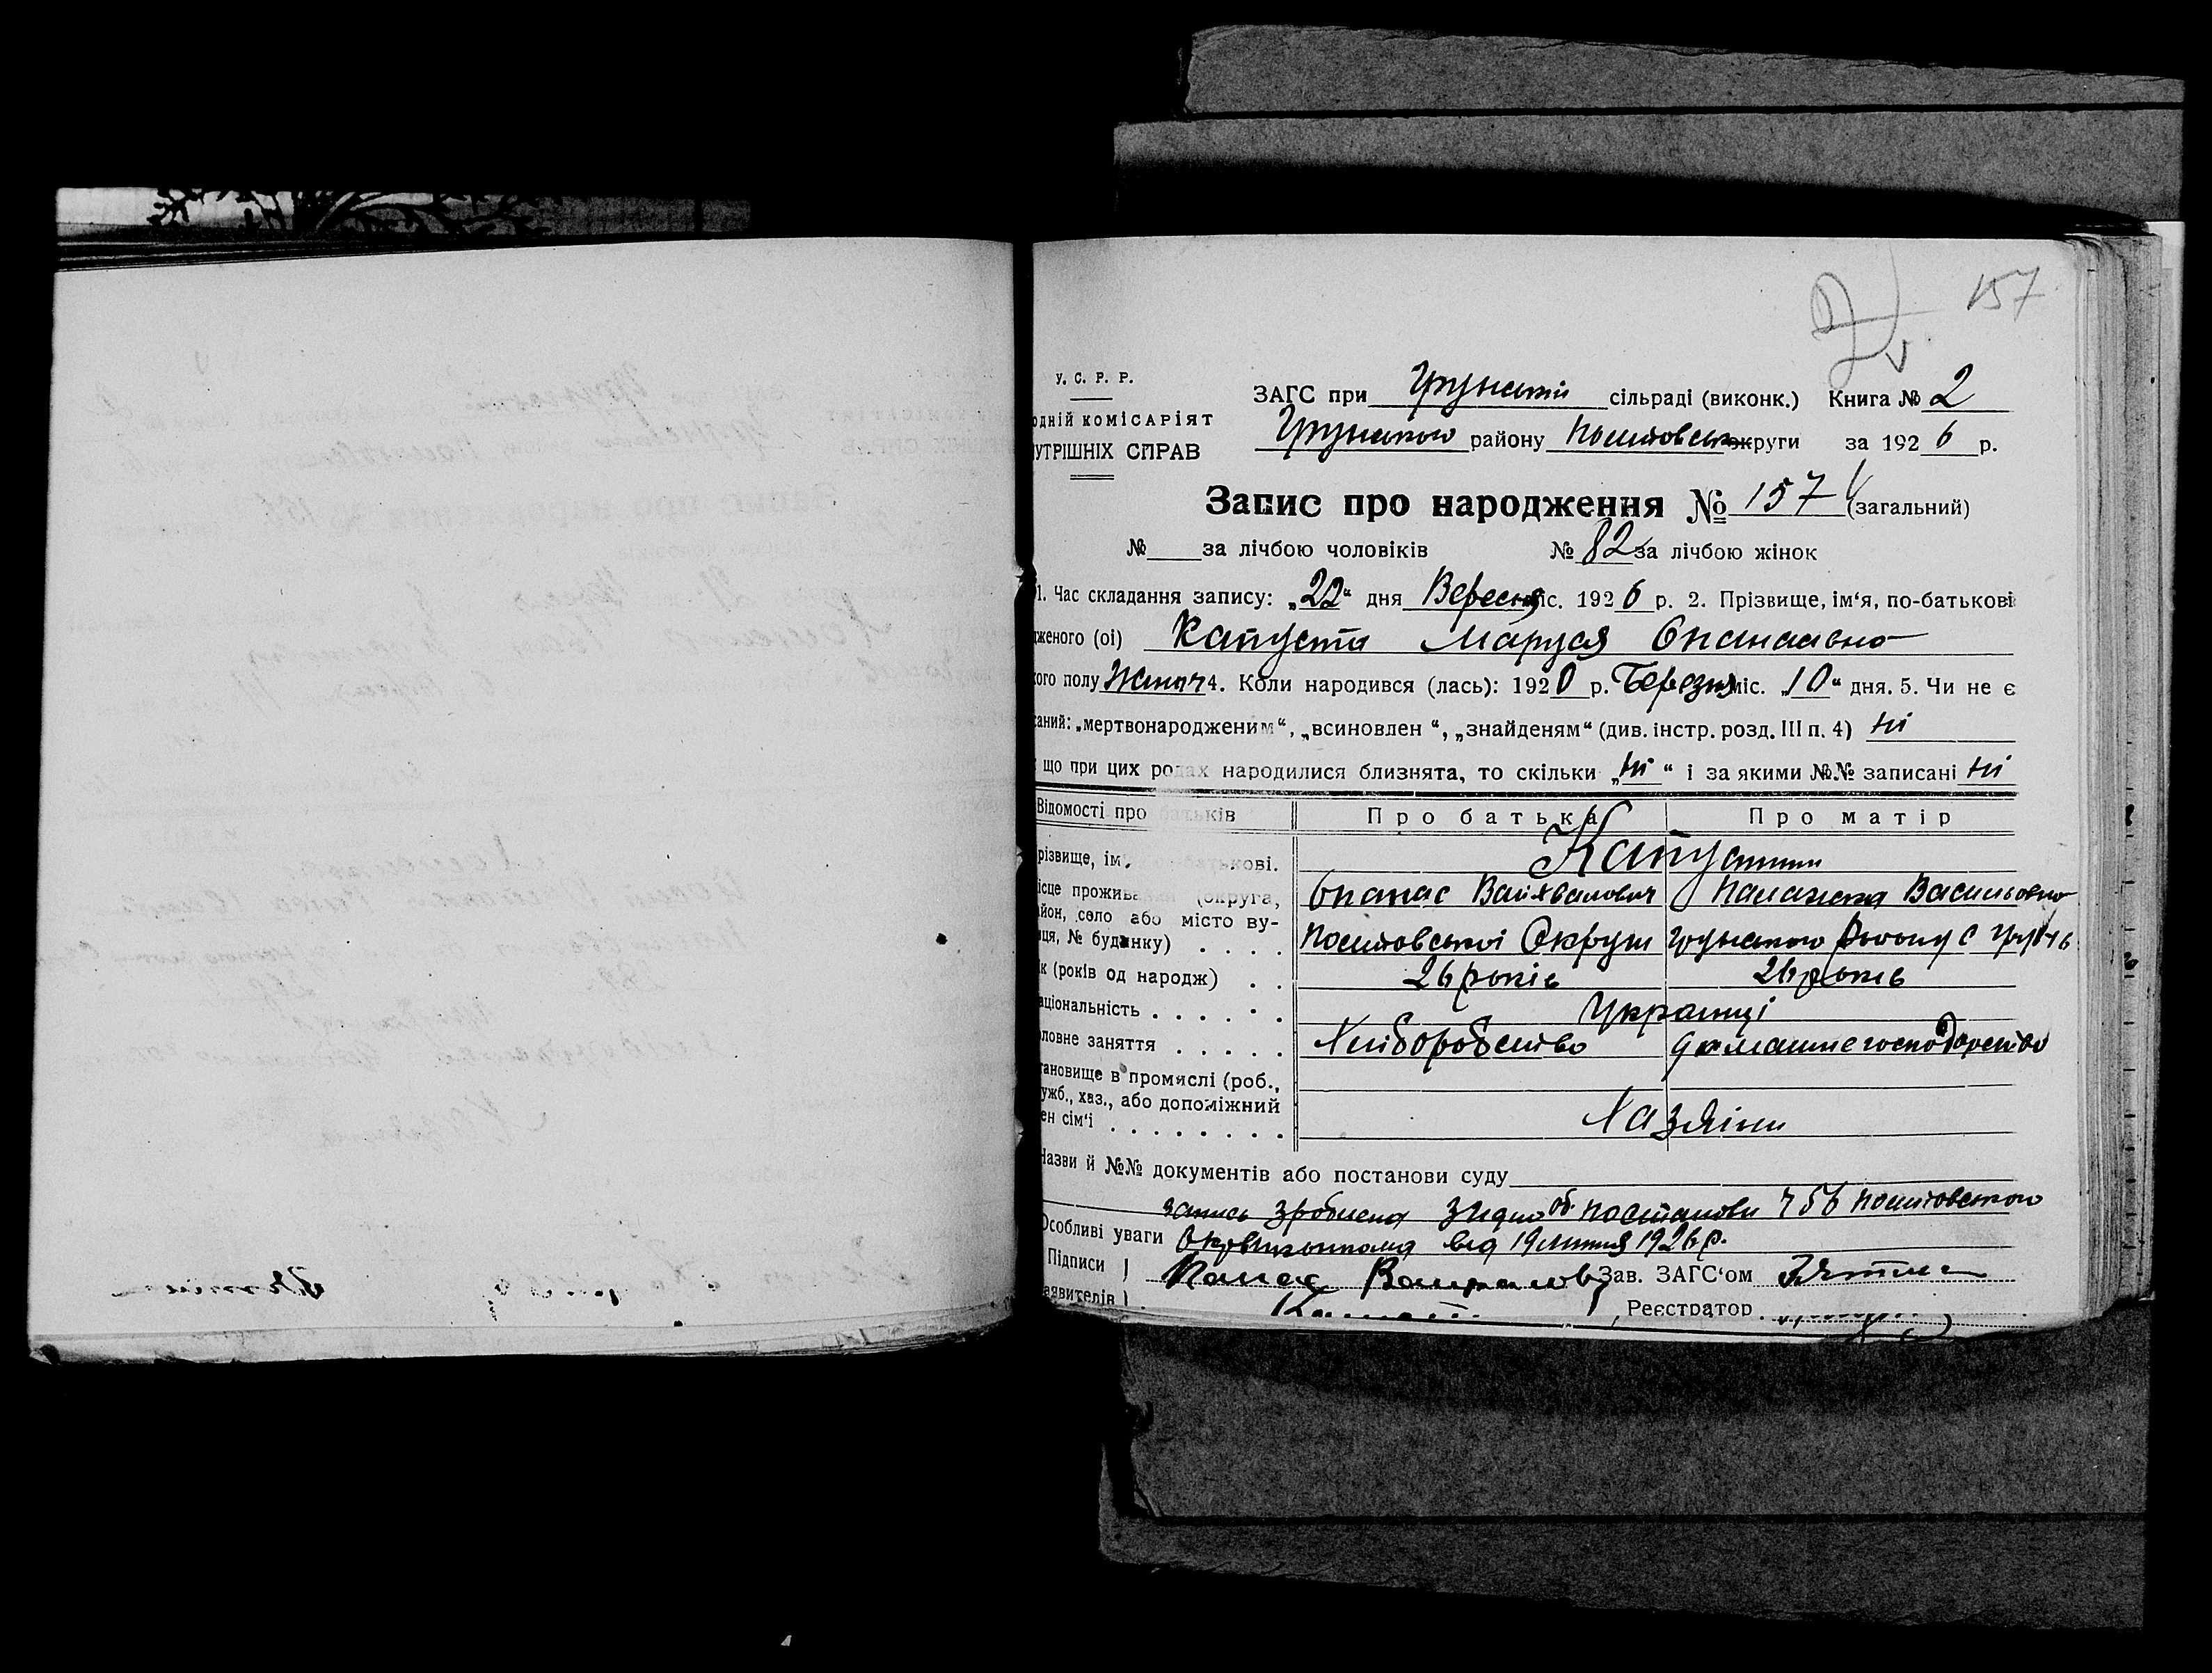 157
У. С. Р. Р.
ЗАГС при Грунській сільраді (виконк.) Книга № 2
одній комісаріят
Грунського району Полтовськ округи за 1926 р.
УТРІШНІХ СПРАВ
Запис про народження № 157 (загальний)
№ за лічбою чоловіків № 82 за лічбою жінок
1. Час складання запису: „22“ дня Вересня міс. 1926 р. 2. Прізвище, ім'я, по-батькові
дженого (ої) Капуста Маруся Опанасівна
ого полу Жіноч 4. Коли народився (лась): 1920 р. Березня міс. „10“ дня. 5. Чи не є
саний: „мертвонародженим“, „всиновлен “, „знайденям“ (див. інстр. розд. III п. 4) ні
що при цих родах народилися близнята, то скільки „ні“ і за якими №№ записані ні
Відомості про батьків Про батька Про матір
різвище, ім. батькові. Капустин
ісце проживання (округа, Опанас Палажка Васильовна
айон, село або місто ву-
иця, № будинку) . . . . Полтовської Округи Грунського Району с Грунь
ік (років од народж) . . 26 років 26 років
аціональність . . . . . . Украинці
ловне заняття . . . . . Хліборобство домашнє господорство
тановище в промислі (роб.,
ужб., хаз., або допоміжний
ен сім'ї . . . . . . . . Хазяіни
Назви й №№ документів або постанови суду
запись зроблена згидно об. постанови 756 Полтовського
Особливі уваги Окрвиконкома від 19 липня 1926 р.
Підписи Панас Зав. ЗАГС'ом
аявителів Реєстратор